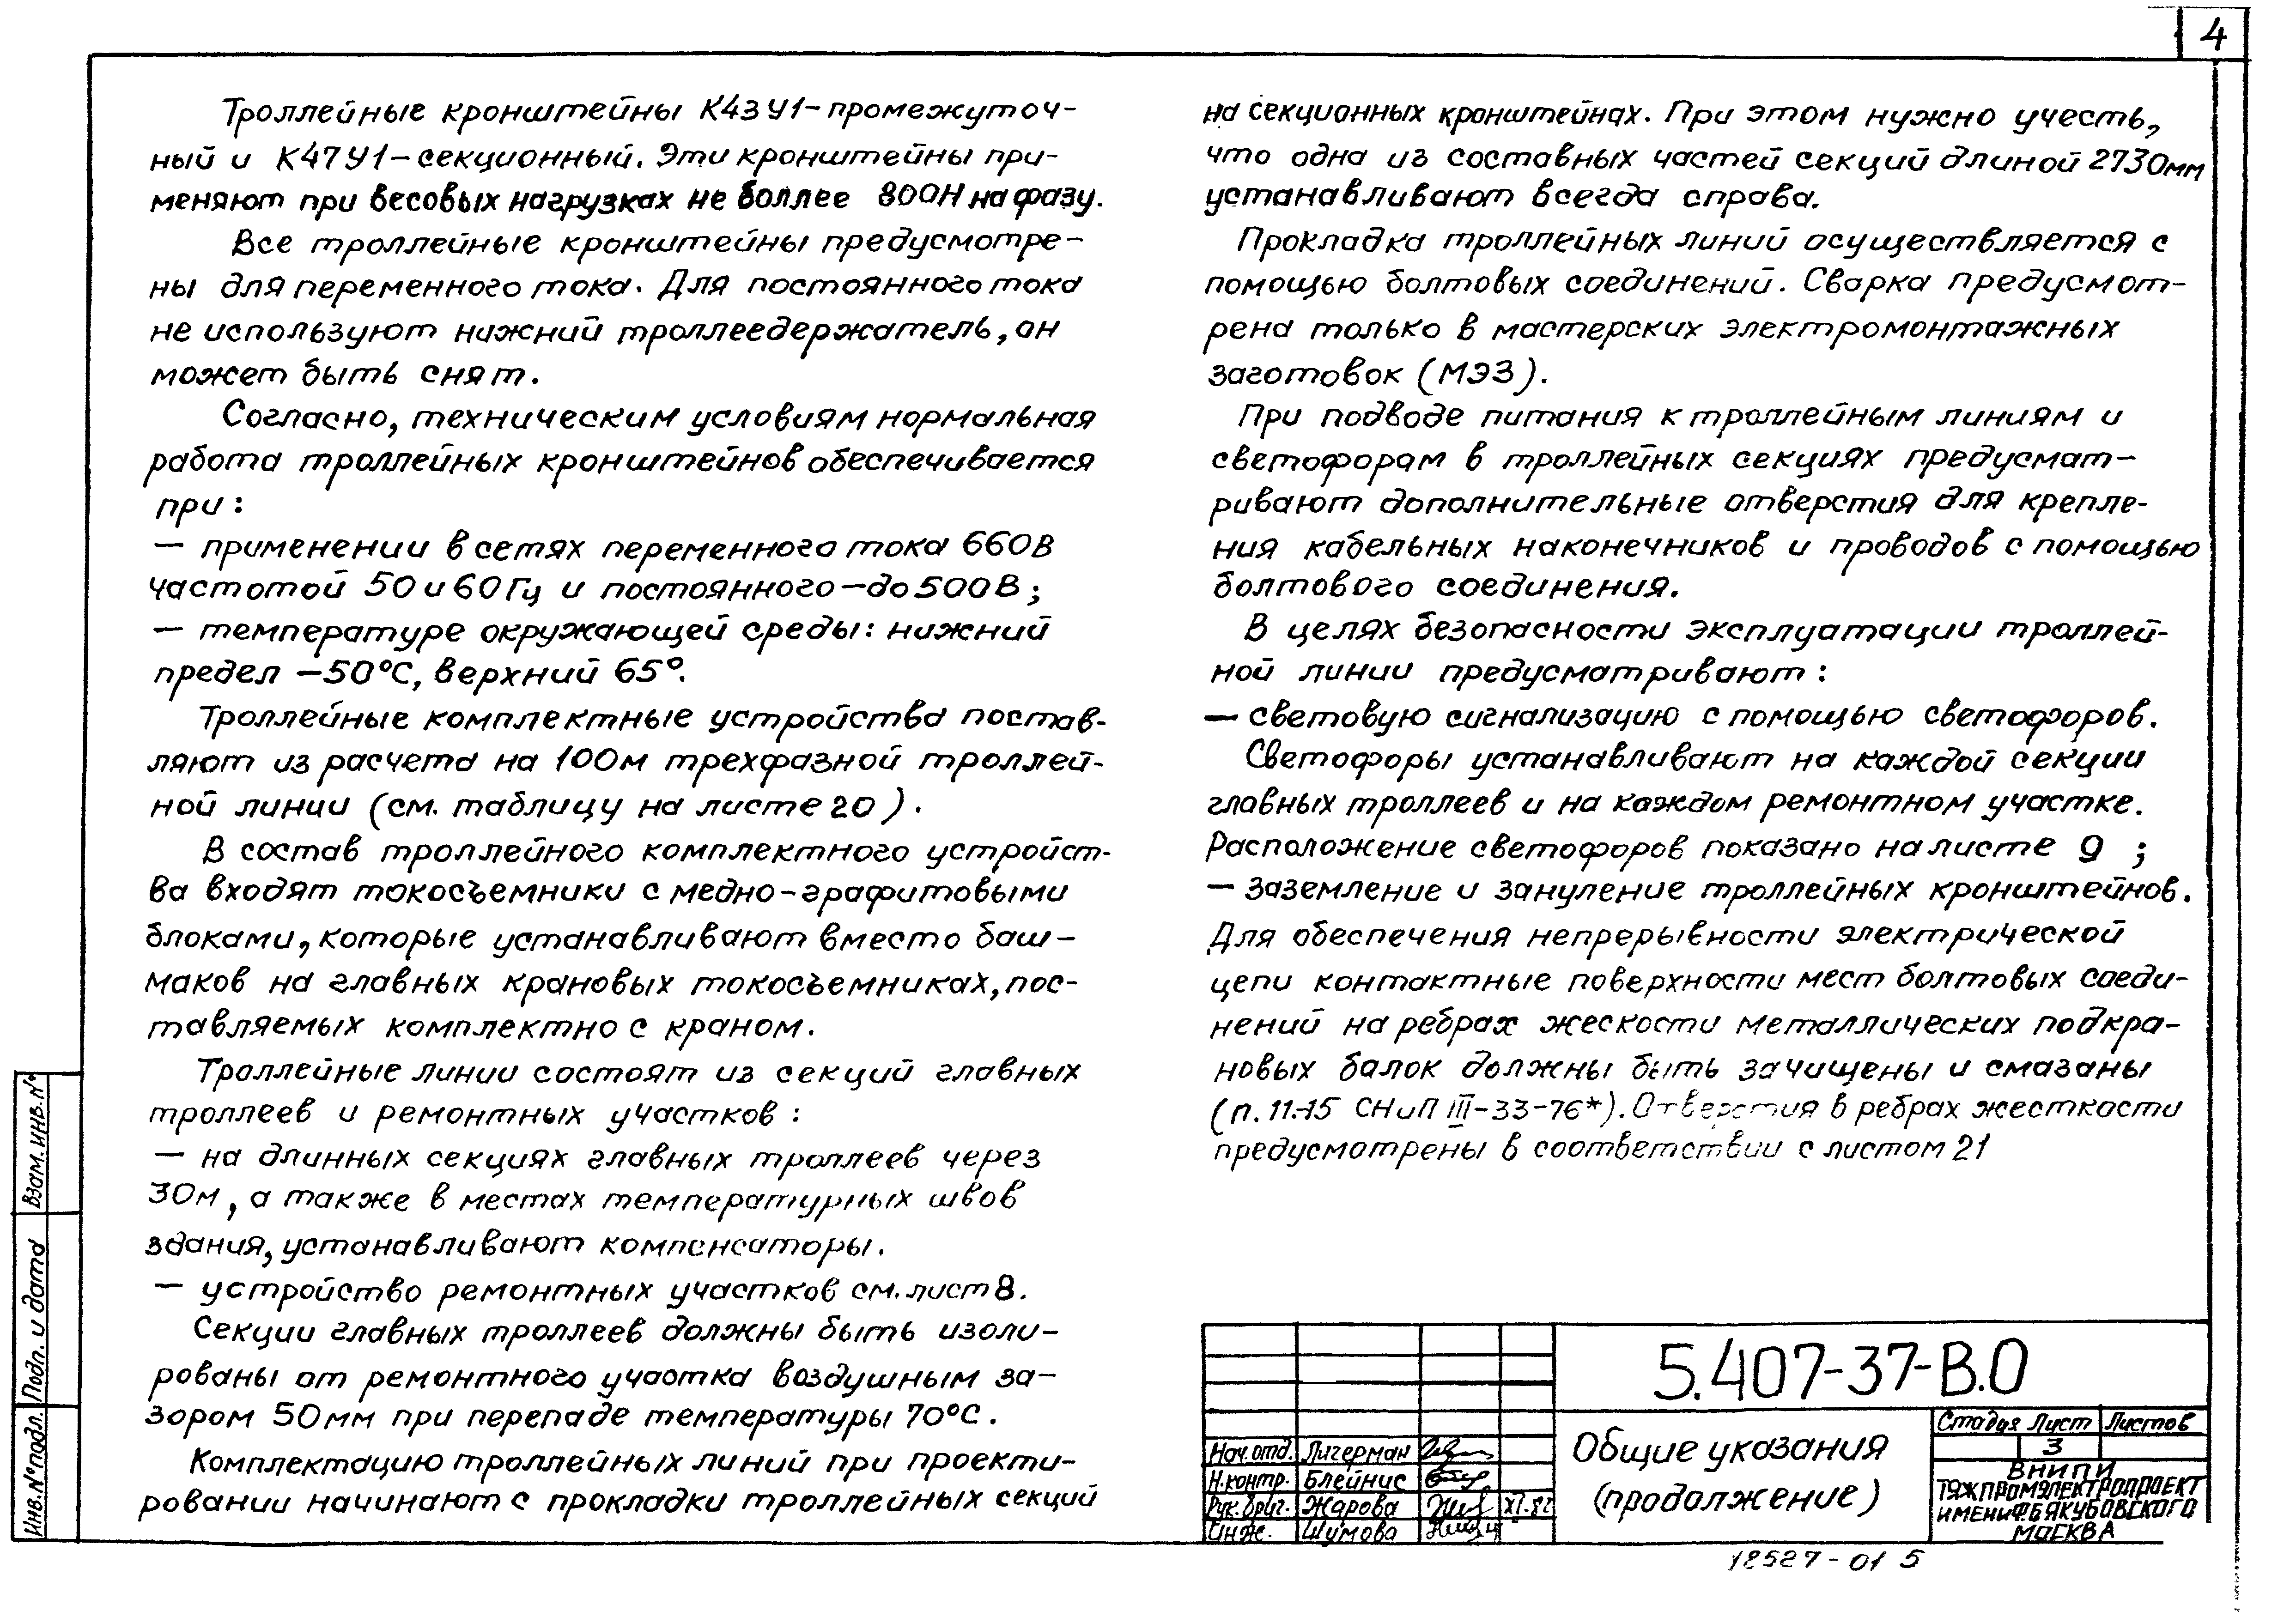 4
Троллейные кронштейны К43У1-промежуточ-
ный и К47У1-секционный. Эти кронштейны при-
меняют при весовых нагрузках не боллее 800Н на фазу.
Все троллейные кронштейны предусмотре-
ны для переменного тока. Для постоянного тока
не используют нижний троллеедержатель, он
может быть снят.
Согласно, техническим условиям нормальная
работа троллейных кронштейнов обеспечивается
при:
— применении в сетях переменного тока 660В
частотой 50 и 60 Гц и постоянного — до 500В;
— температуре окружающей среды: нижний
предел −50°С, верхний 65°.
Троллейные комплектные устройства постав-
ляют из расчета на 100м трехфазной троллей-
ной линии (см. таблицу на листе 20).
В состав троллейного комплектного устройст-
ва входят токосъемники с медно-графитовыми
блоками, которые устанавливают вместо баш-
маков на главных крановых токосъемниках, пос-
тавляемых комплектно с краном.
Троллейные линии состоят из секций главных
троллеев и ремонтных участков:
— на длинных секциях главных троллеев через
30м, а также в местах температурных швов
здания, устанавливают компенсаторы.
— устройство ремонтных участков см. лист 8.
Секции главных троллеев должны быть изоли-
рованы от ремонтного участка воздушным за-
зором 50мм при перепаде температуры 70°С.
Комплектацию троллейных линий при проекти-
ровании начинают с прокладки троллейных секций
на секционных кронштейнах. При этом нужно учесть,
что одна из составных частей секций длиной 2730мм
устанавливают всегда справа.
Прокладка троллейных линий осуществляется с
помощью болтовых соединений. Сварка предусмот-
рена только в мастерских электромонтажных
заготовок (МЭЗ).
При подводе питания к троллейным линиям и
светофорам в троллейных секциях предусмат-
ривают дополнительные отверстия для крепле-
ния кабельных наконечников и проводов с помощью
болтового соединения.
В целях безопасности эксплуатации троллей-
ной линии предусматривают:
— световую сигнализацию с помощью светофоров.
Светофоры устанавливают на каждой секции
главных троллеев и на каждом ремонтном участке.
Расположение светофоров показано на листе 9;
— заземление и зануление троллейных кронштейнов.
Для обеспечения непрерывности электрической
цепи контактные поверхности мест болтовых соеди-
нений на ребрах жескости металлических подкра-
новых балок должны быть зачищены и смазаны
(п. 11.-15 СНиП III-33-76*). Отверстия в ребрах жесткости
предусмотрены в соответствии с листом 21
Взам. инв. №
Подп. и дата
Инв. № подл.
5.407-37-В.0
Нач. отд. Лигерман
Н. контр. Блейнис
Рук. бриг. Жарова XI-82
Инж. Шумова
Общие указания
(продолжение)
Стадия Лист Листов
3
ВНИПИ
ТЯЖПРОМЭЛЕКТРОПРОЕКТ
ИМЕНИ Ф.Б.ЯКУБОВСКОГО
МОСКВА
18527-01 5